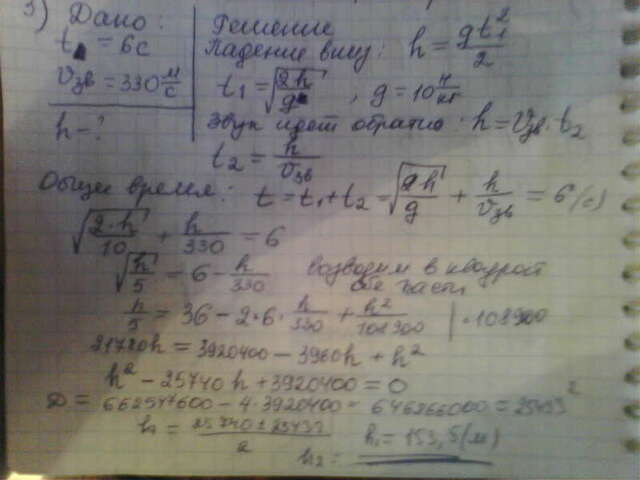 3) Дано:
t = 6с
Vзв = 330 м/с
h - ?
Решение
Падение вниз: h = gt₁²/2
t₁ = √(2h/g), g = 10 Н/кг
Звук идет обратно: h = Vзв · t₂
t₂ = h/Vзв
Общее время: t = t₁ + t₂ = √(2h/g) + h/Vзв = 6 (с)
√(2·h/10) + h/330 = 6
√(h/5) = 6 - h/330 возводим в квадрат
обе части
h/5 = 36 - 2·6·h/330 + h²/108900 | · 108900
21780h = 3920400 - 3960h + h²
h² - 25740h + 3920400 = 0
D = 662547600 - 4·3920400 = 646866000 = 25433²
h₁ = (25740 ± 25433)/2
h₂ = h₁ = 153,5 (м)